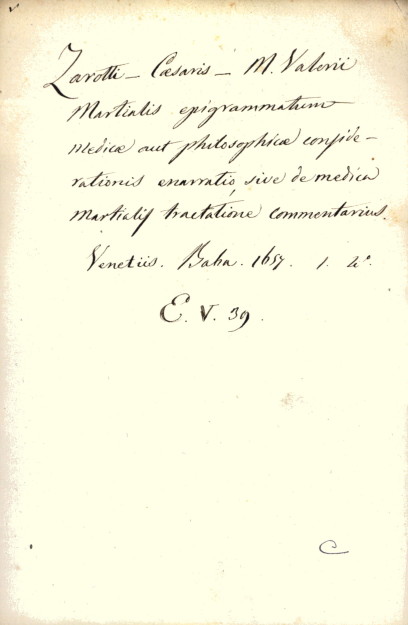 Zarotti – Cæsaris – M. Valerii
Martialis epigrammatum
medicæ aut philosophicæ conside-
rationis enarratio, sive de medica
Martialis tractatione commentarius.
Venetiis. Baba. 1657. 1. 4°.
E. V. 39.
C